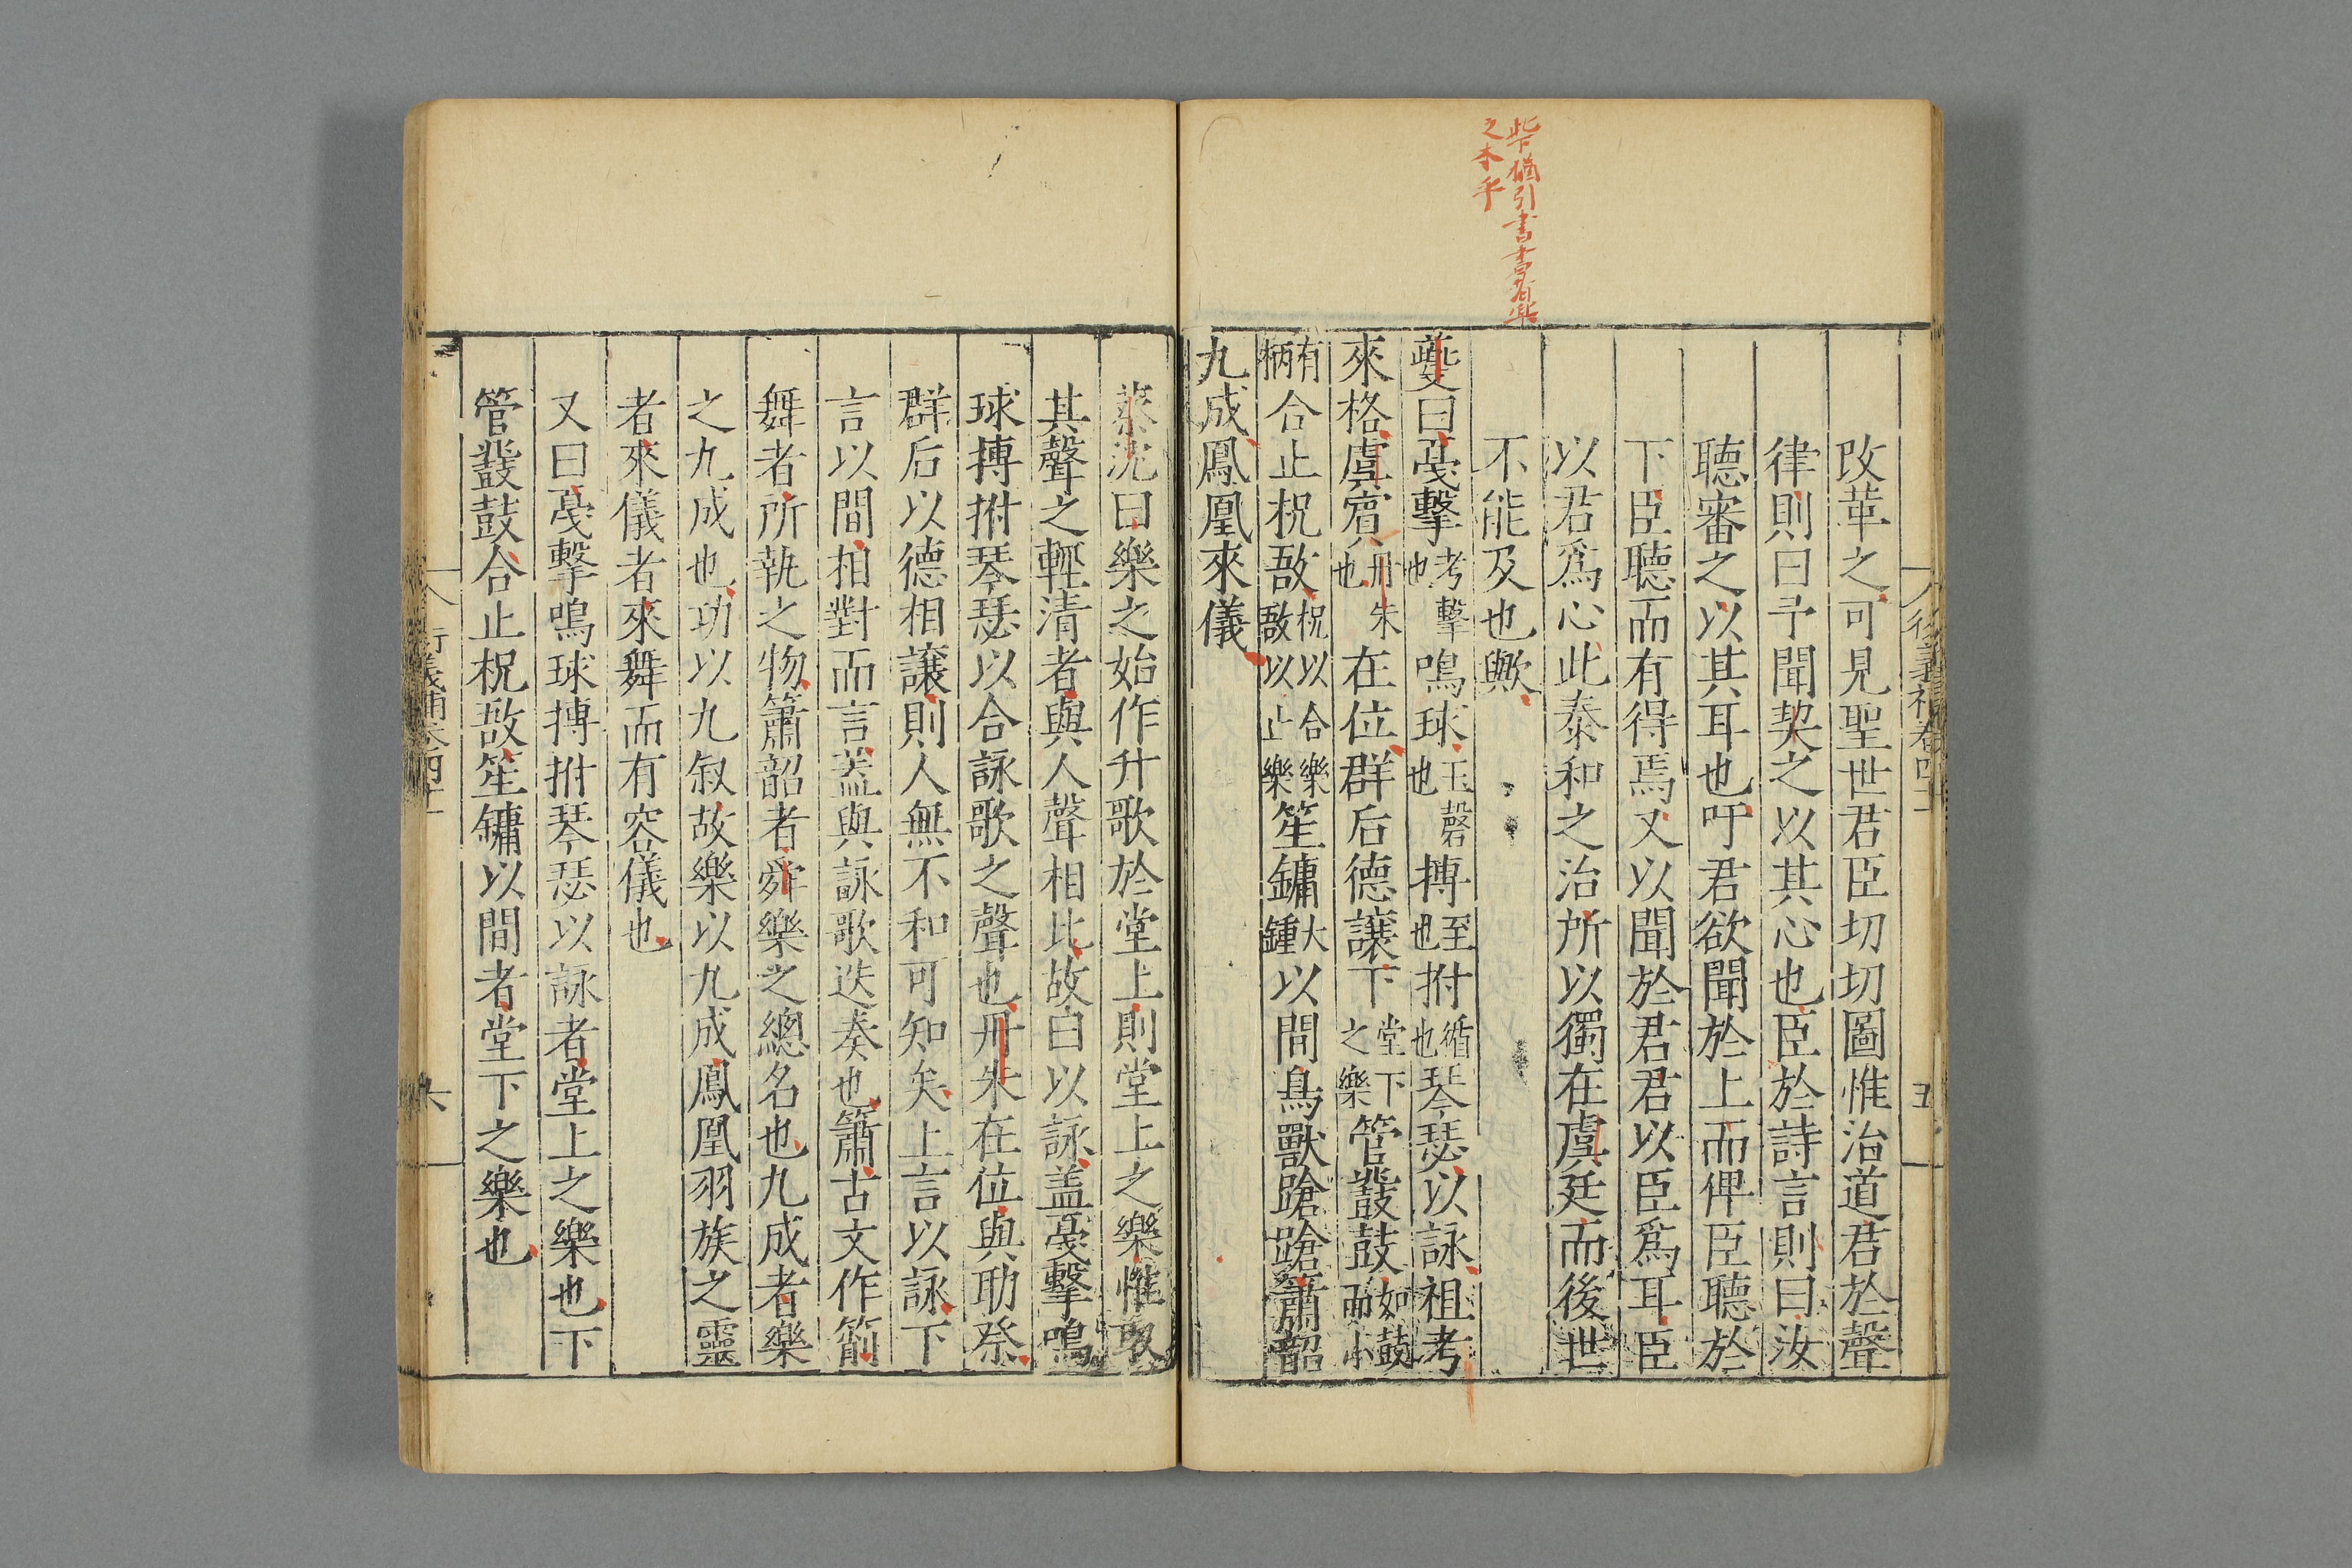 此下猶引書言
之本乎
改革之可見聖世君臣切切圖惟治道君於聲
律則曰予聞契之以其心也臣於詩言則曰汝
聽審之以其耳也吁君欲聞於上而俾臣聽於
下臣聽而有得焉又以聞於君君以臣爲耳臣
以君爲心此泰和之治所以獨在虞廷而後世
不能及也歟
夔曰戞擊考擊也鳴球玉磬也搏至也拊循也琴瑟以詠祖考
來格虞賓丹朱也在位群后德讓下堂下之樂管鼗鼓如鼓而小
有柄合止柷敔柷以合樂敔以止樂笙鏞大鍾以間鳥獸蹌蹌簫韶
九成鳳凰來儀
五
蔡沈曰樂之始作升歌於堂上則堂上之樂惟取
其聲之輕清者與人聲相比故曰以詠蓋戞擊鳴
球搏拊琴瑟以合詠歌之聲也丹朱在位與助祭
群后以德相讓則人無不和可知矣上言以詠下
言以間相對而言蓋與詠歌迭奏也簫古文作箾
舞者所執之物簫韶者舜樂之總名也九成者樂
之九成也功以九叙故樂以九成鳳凰羽族之靈
者來儀者來舞而有容儀也
又曰戞擊鳴球搏拊琴瑟以詠者堂上之樂也下
管鼗鼓合止柷敔笙鏞以間者堂下之樂也
六